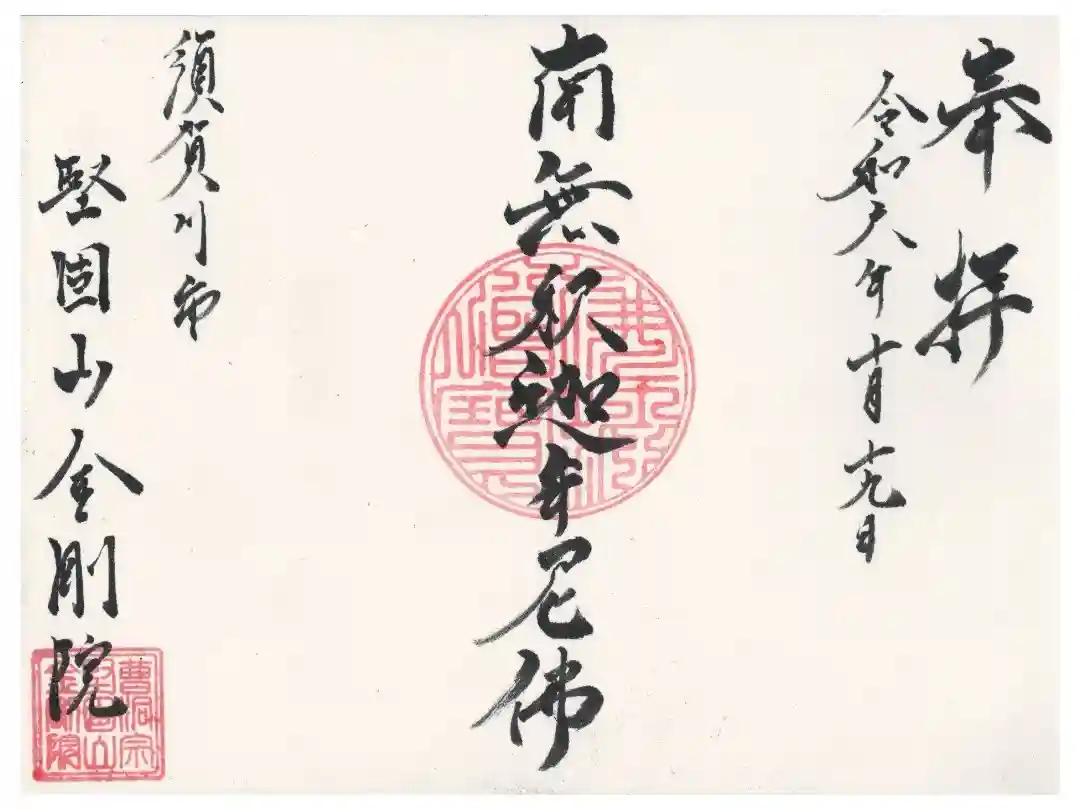 奉拝
令和六年十月十九日
南無釈迦牟尼佛
須賀川市
堅固山金剛院
曹洞宗
堅固山
金剛院